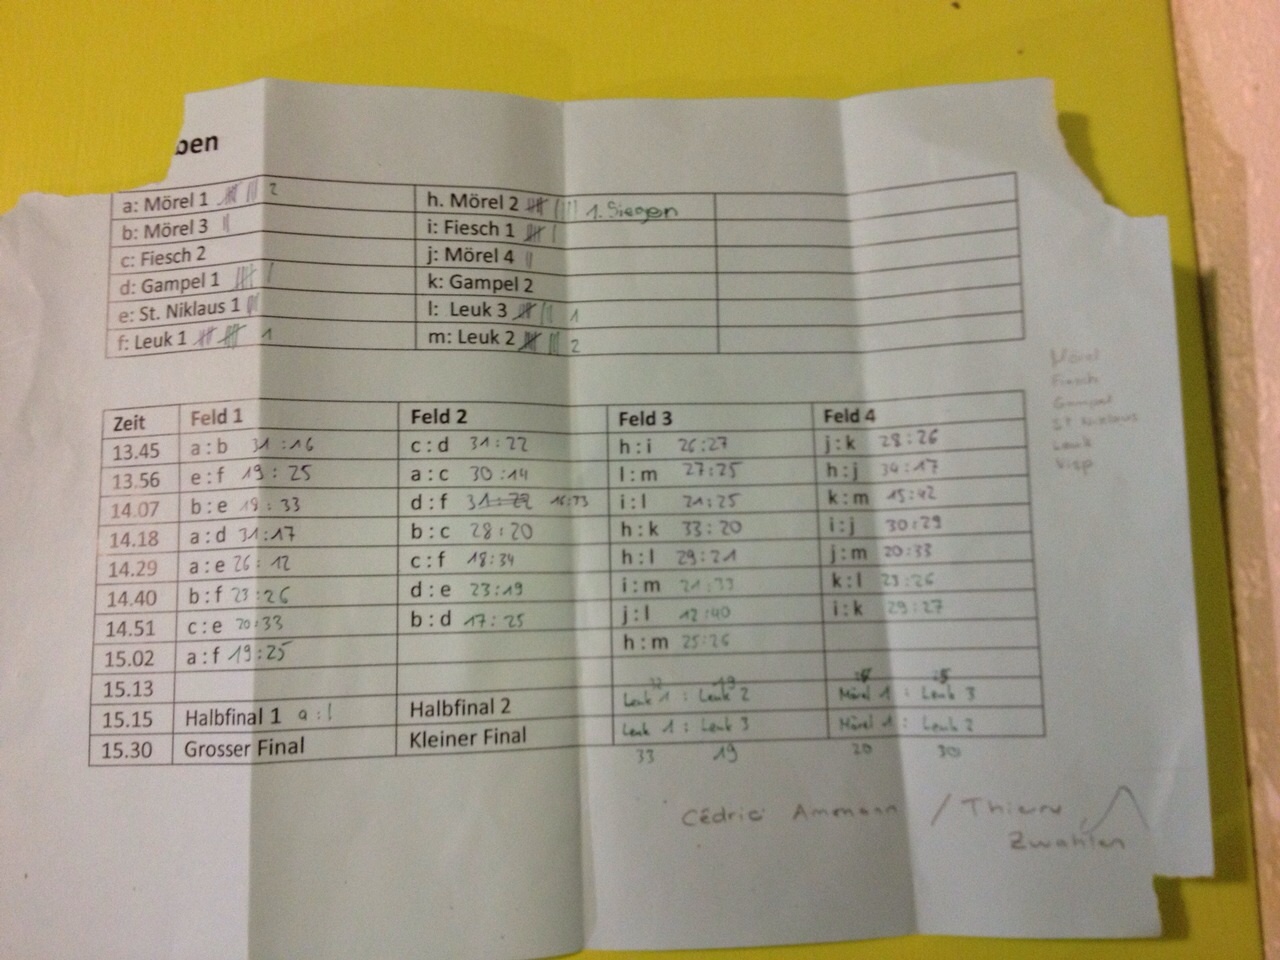 ben
a: Mörel 1 2 h. Mörel 2 1. Siegen
b: Mörel 3 i: Fiesch 1
c: Fiesch 2 j: Mörel 4
d: Gampel 1 k: Gampel 2
e: St. Niklaus 1 l: Leuk 3 1
f: Leuk 1 1 m: Leuk 2 2
Mörel
Fiesch
Gampel
St Niklaus
Leuk
Visp
Zeit Feld 1 Feld 2 Feld 3 Feld 4
13.45 a : b 31 : 16 c : d 31 : 22 h : i 26:27 j : k 28:26
13.56 e : f 19 : 25 a : c 30 : 14 l : m 27:25 h : j 34:17
14.07 b : e 19 : 33 d : f 31:22 i : l 21:25 k : m 15:42
14.18 a : d 31:17 b : c 28:20 h : k 33:20 i : j 30:29
14.29 a : e 26 : 12 c : f 18:34 h : l 29:21 j : m 20:33
14.40 b : f 23:26 d : e 23:19 i : m 21:33 k : l 23:26
14.51 c : e 20:33 b : d 17:25 j : l 12:40 i : k 29:27
15.02 a : f 19:25 h : m 25:26
15.13
19
15.15 Halbfinal 1 a : l Halbfinal 2 Leuk 1 : Leuk 2 Mörel 1 : Leuk 3
15.30 Grosser Final Kleiner Final Leuk 1 : Leuk 3 Mörel 1 : Leuk 2
33 19 20 30
Cédric Ammann / Thierry
Zwahlen